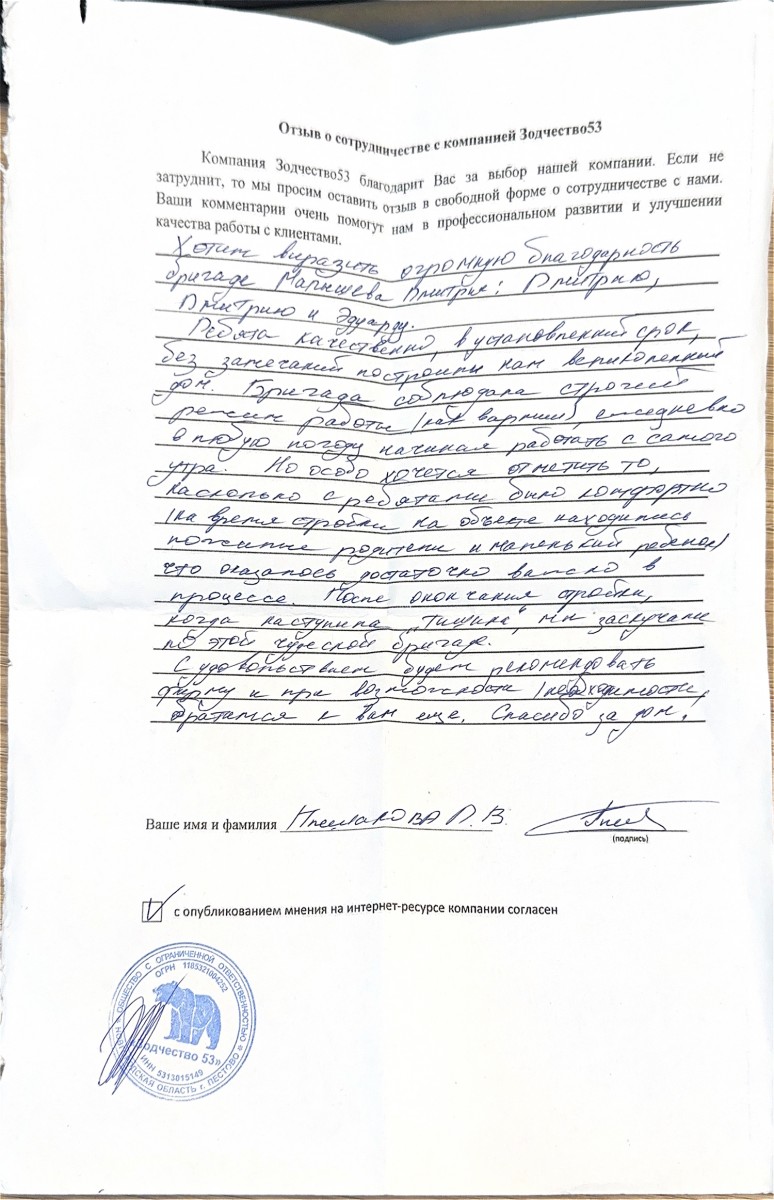 Отзыв о сотрудничестве с компанией Зодчество53
Компания Зодчество53 благодарит Вас за выбор нашей компании. Если не
затруднит, то мы просим оставить отзыв в свободной форме о сотрудничестве с нами.
Ваши комментарии очень помогут нам в профессиональном развитии и улучшении
качества работы с клиентами.
Хотим выразить огромную благодарность
бригаде Малышева Дмитрия: Дмитрию,
Дмитрию и Эдуарду.
Ребята качественно, в установленный срок,
без замечаний построили нам великолепный
дом. Бригада соблюдала строгий
режим работы (как вариант), ежедневно
в любую погоду начиная работать с самого
утра. Но особо хочется отметить то,
насколько с ребятами было комфортно
(на время стройки на объекте находились
пожилые родители и маленький ребенок)
что оказалось достаточно важно в
процессе. После окончания стройки,
когда наступила "тишина", мы заскучали
по этой чудесной бригаде.
С удовольствием будем рекомендовать
фирму и при возможности /необходимости,
обратимся к вам еще. Спасибо за дом.
Ваше имя и фамилия П. В.
(подпись)
с опубликованием мнения на интернет-ресурсе компании согласен
ОБЩЕСТВО С ОГРАНИЧЕННОЙ ОТВЕТСТВЕННОСТЬЮ
ОГРН 1185321004252
«Зодчество 53»
ИНН 5313015149
ОБЛАСТЬ г. ПЕСТОВО